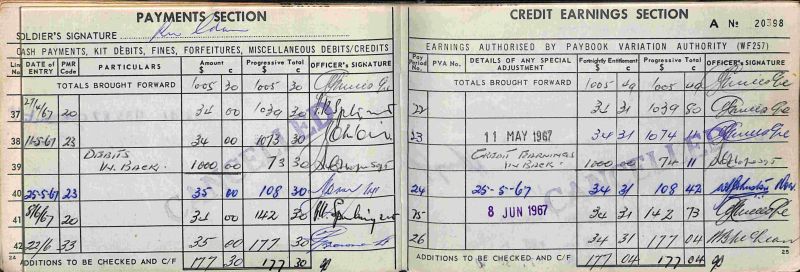 PAYMENTS SECTION
SOLDIER'S SIGNATURE
CASH PAYMENTS, KIT DEBITS, FINES, FORFEITURES, MISCELLANEOUS DEBITS/CREDITS
Lin No DATE of ENTRY PMR Code PARTICULARS Amount $ c Progressive Total $ c OFFICER'S SIGNATURE
TOTALS BROUGHT FORWARD 1005 30 1005 30
37 27/4/67 20 34 00 1039 30
38 11-5-67 23 34 00 1073 30
39 DEBITS IN BACK. 1000 00 73 30
40 25-5-67 23 35 00 108 30
41 8/6/67 20 34 00 142 30
42 22/6 33 35 00 177 30
24 ADDITIONS TO BE CHECKED AND C/F 177 30 177 30
CANCELLED
CREDIT EARNINGS SECTION
A No 20398
EARNINGS AUTHORISED BY PAYBOOK VARIATION AUTHORITY (WF257)
Pay Period No. PVA No. DETAILS OF ANY SPECIAL ADJUSTMENT Fortnightly Entitlement $ c Progressive Total $ c OFFICER'S SIGNATURE
TOTALS BROUGHT FORWARD 1005 49 1005 49
22 34 31 1039 80
23 11 MAY 1967 34 31 1074 11
CREDIT EARNINGS IN BACK. 1000 00 74 11
24 25-5-67 34 31 108 42
25 8 JUN 1967 34 31 142 73
26 34 31 177 04
ADDITIONS TO BE CHECKED AND C/F 177 04 177 04
25
CANCELLED